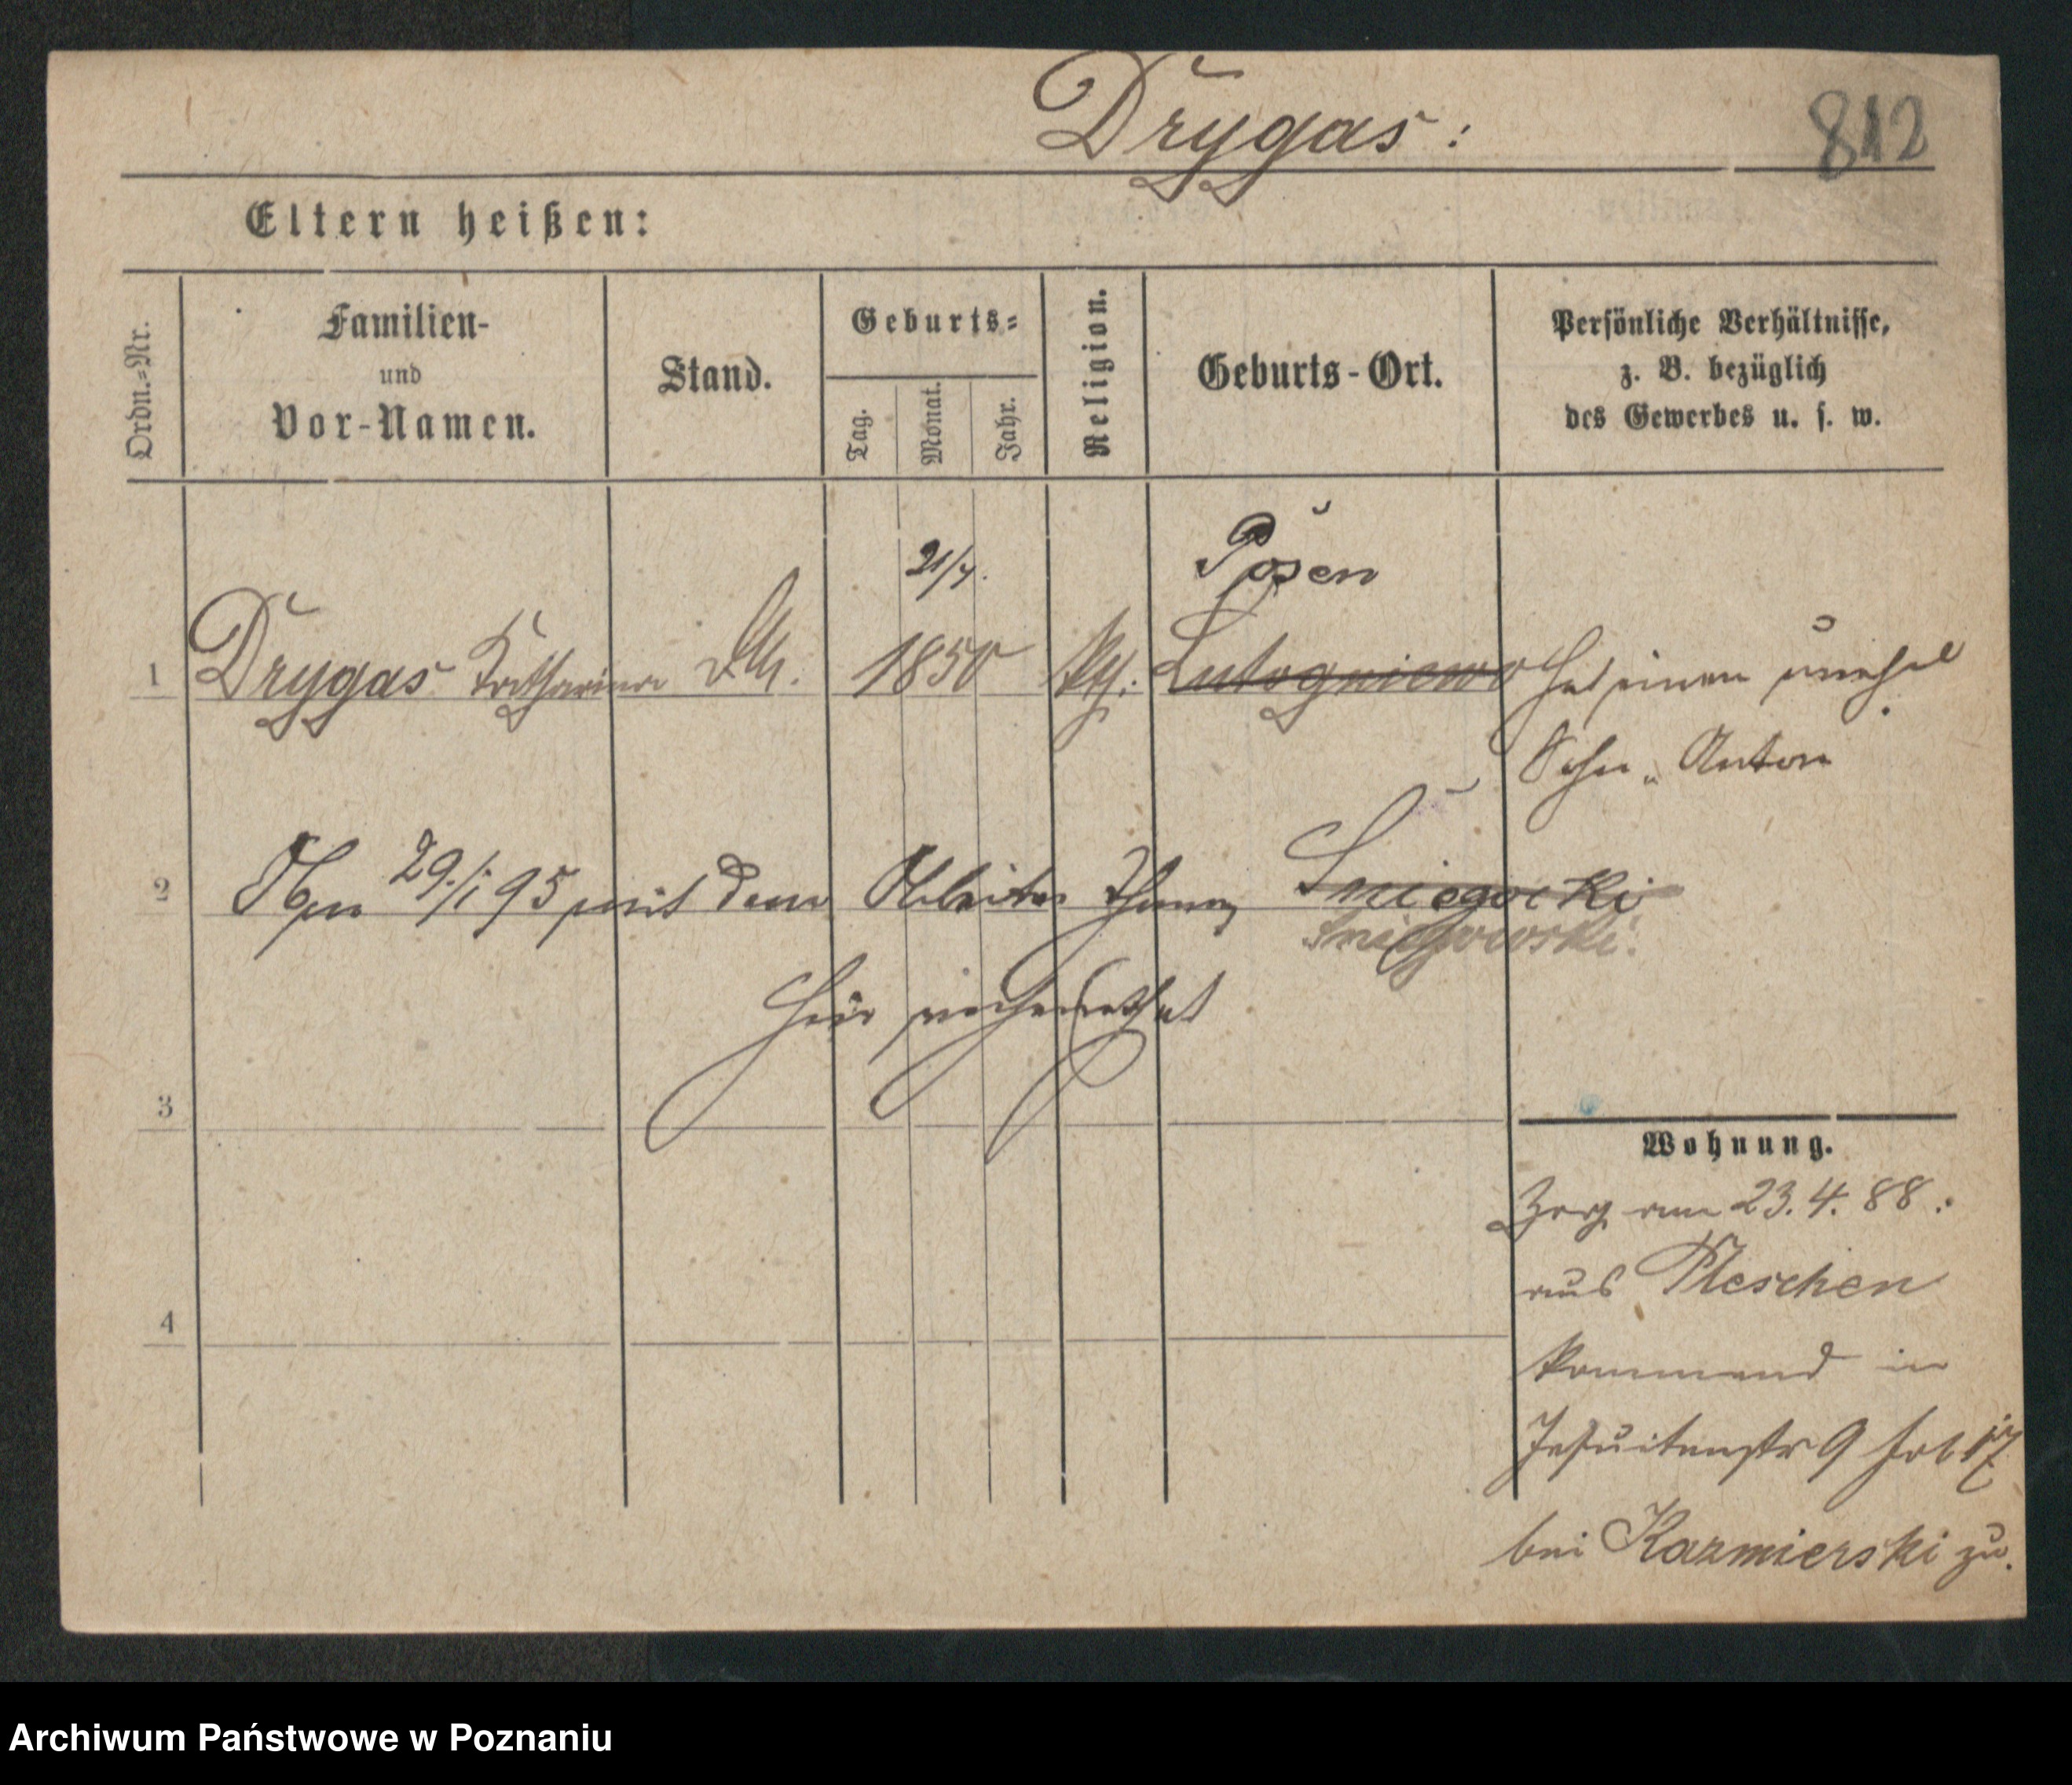 Drygas:
812
Eltern heißen:
Ordn.-Nr.
Familien-
und
Vor-Namen.
Stand.
Geburts-
Tag.
Monat.
Jahr.
Religion.
Geburts-Ort.
Persönliche Verhältnisse,
z. B. bezüglich
des Gewerbes u. s. w.
21/4. Posen
1 Drygas Katharina 1850 Lutogniewo hat einen unehel
Sohn „ Anton
2 Am 29./1 95 mit dem Arbeiter Sniegocki
Sniegowski.
hier verheirathet
3
Wohnung.
Zog am 23. 4. 88:
aus Pleschen
4
kommend in
Jesuitenstr 9
bei Kazmierski zu.
Archiwum Państwowe w Poznaniu